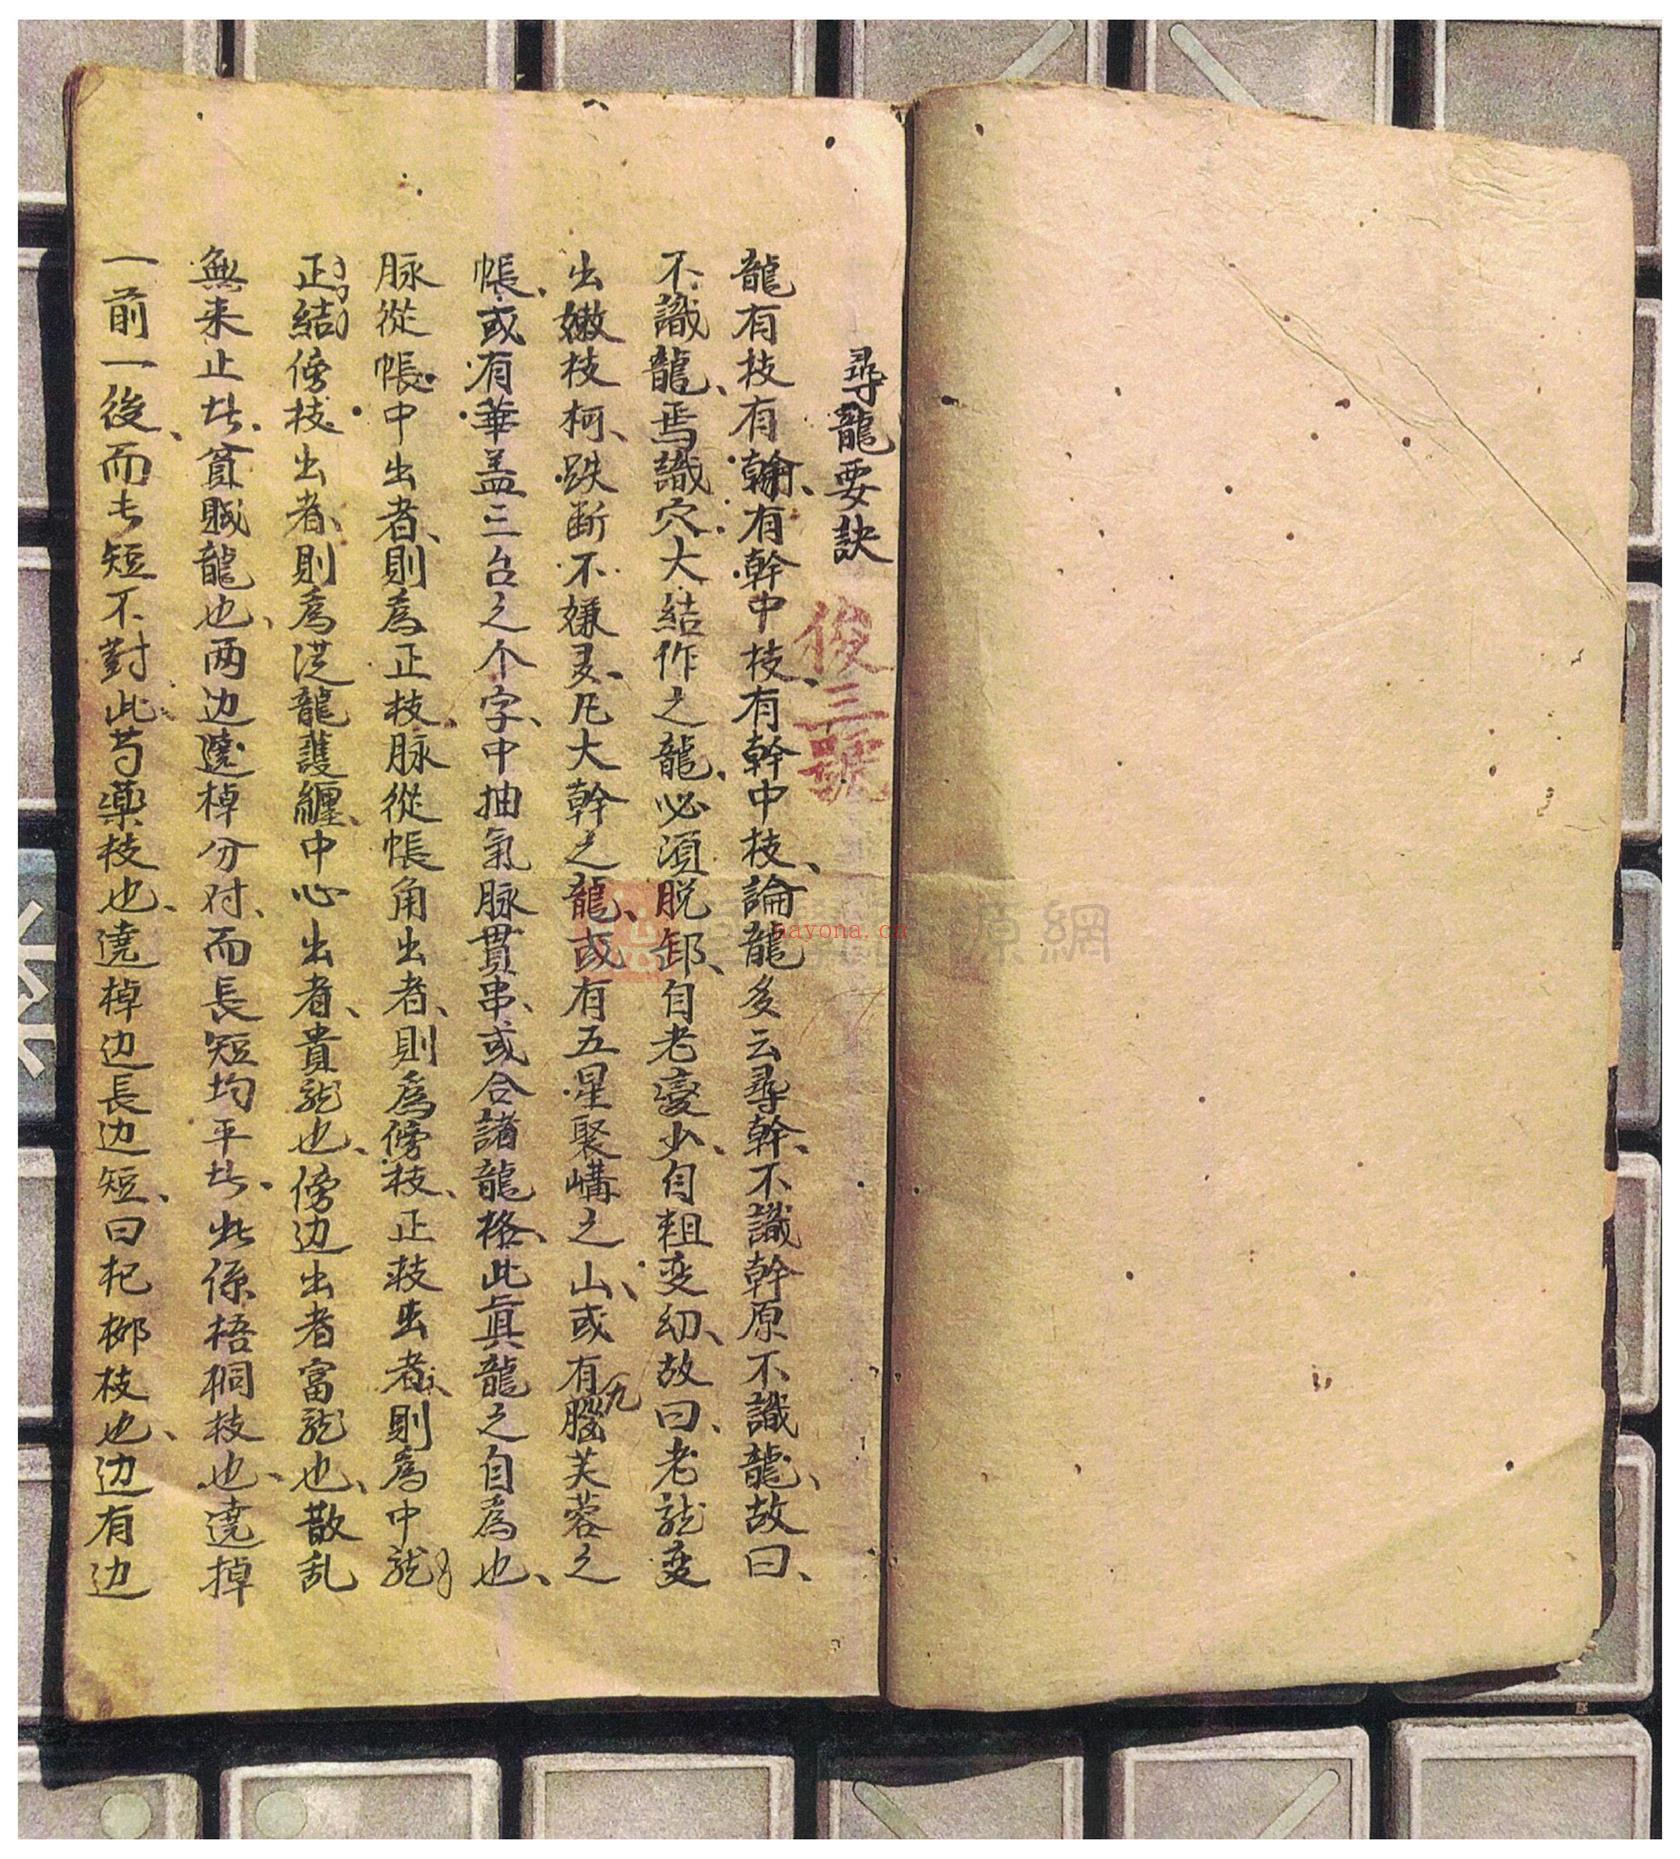 尋龍要訣
俊三號
龍有枝有榦、有幹中枝、有幹中枝、論龍多云尋幹、不識幹原不識龍、故曰、
不識龍、焉識穴、大結作之龍、必須脱卸、自老变少、自粗变幼、故曰、老龙变
出嫩枝柯、跌断不嫌多、凡大幹之龍、或有五星聚構之山、或有九腦芙蓉之
帳、或有華盖三台之个字、中抽氣脉貫串、或合諸龍格、此真龍之自為也、
脉從帳中出者、則為正枝、脉從帳角出者、則為傍枝、正枝出者、則為中龙
正結傍枝出者、則為從龍護纏、中心出者、貴龙也、傍边出者富龙也、散乱
無来止者、貧賊龍也、两边遶棹分对、而長短均平者、此係梧桐枝也、遶掉
一前一後、而長短不對、此芍藥枝也、遶棹边長边短、曰杞柳枝也、边有边
nayona.ca
源網